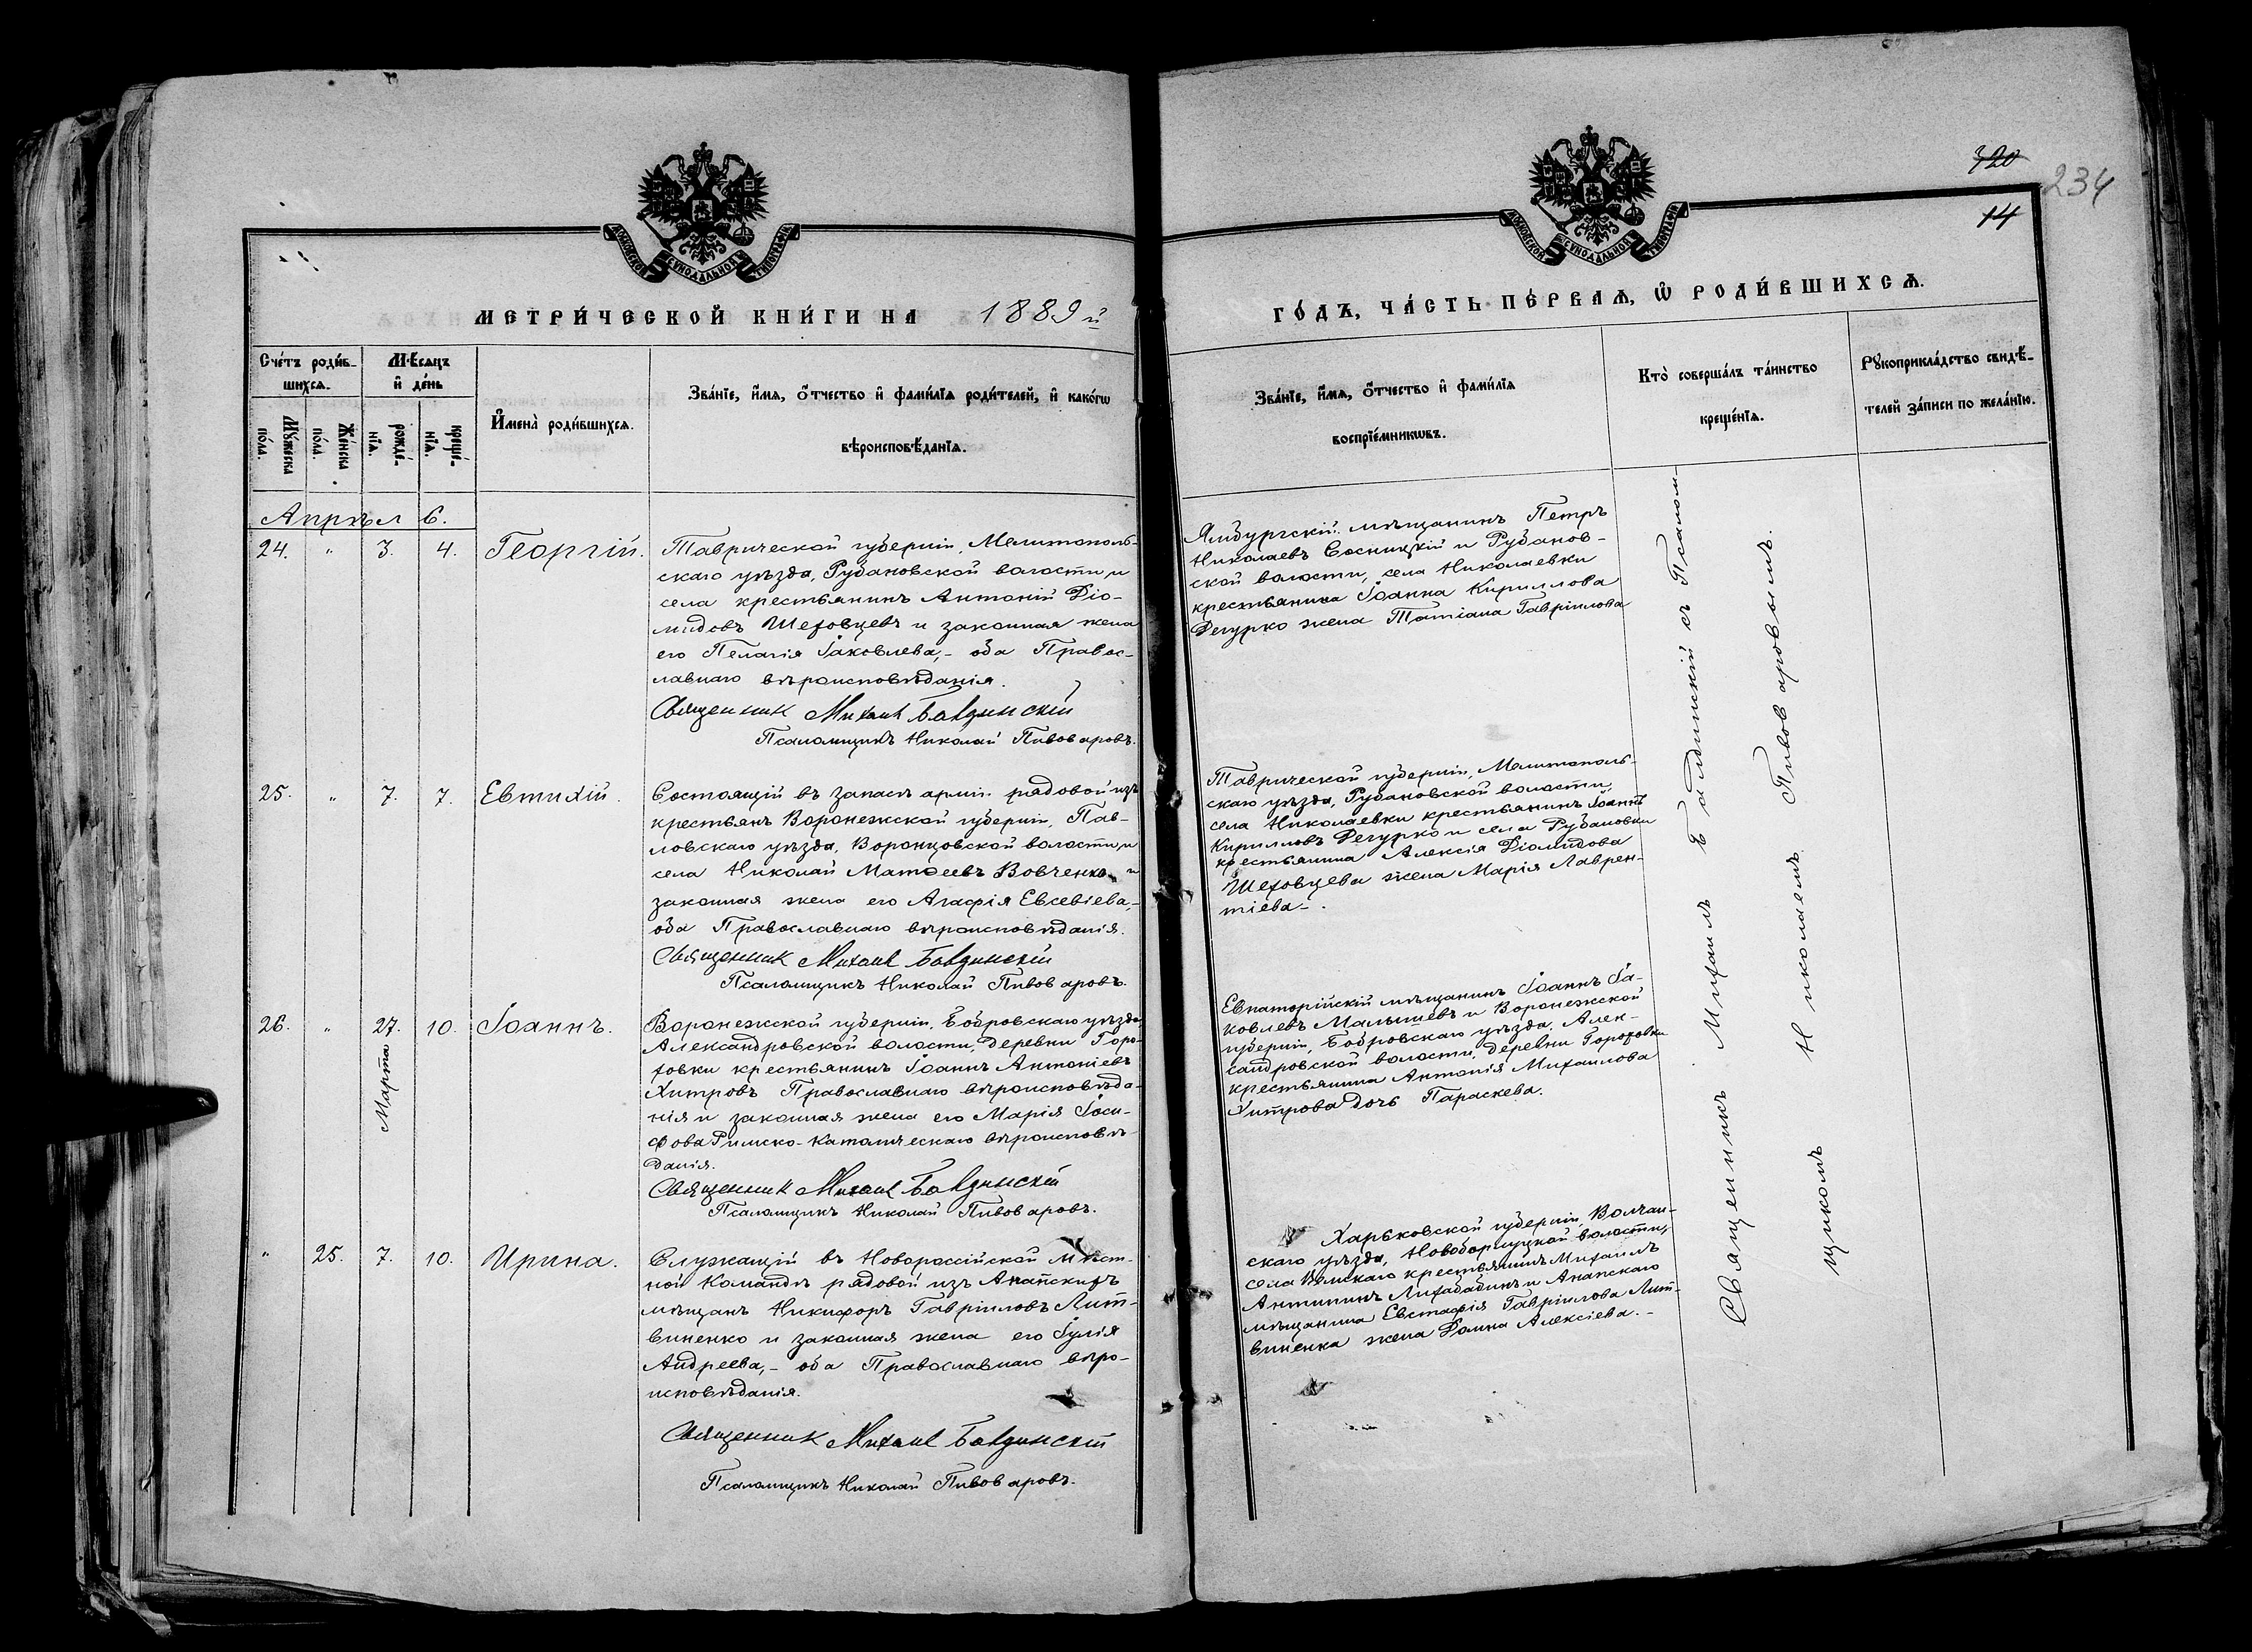 МОСКОВСКОЙ СѴНОДАЛЬНОЙ ТИПОГРАФІИ
МЕТРИ́ЧЕСКОЙ КНИ́ГИ НА 1889й
Сче́тъ роди́в-
шихсѧ.
Мѣ́сѧцъ
и҆ де́нь
Мꙋ́жеска
по́ла.
Же́нска
по́ла.
рожде́-
нїѧ.
креще́-
нїѧ.
И҆мена̀ роди́вшихсѧ.
Зва́нїе, и҆́мѧ, ѻ҆́тчество и҆ фами́лїѧ роди́телей, и҆ како́гѡ
вѣроисповѣ́данїѧ.
Апрѣл 6.
24. " 3. 4. Георгій.
Таврической губерніи, Мелитополь-
скаго уѣзда, Рубановской волости и
села крестьянинъ Антоній Діо-
мидовъ Шеховцевъ и законная жена
его Пелагія Іаковлева,- оба Правос-
лавнаго вѣроисповѣданія.
Священник Михаил Бавдинскій
Псаломщикъ Николай Пивоваровъ.
25. " 7. 7. Евтихій.
Состоящій въ запасѣ арміи рядовой изъ
крестьянъ Воронежской губерніи, Пав-
ловскаго уѣзда, Воронцовской волости и
села Николай Матѳеевъ Вовченко и
законная жена его Агафія Евсевіева,-
оба Православнаго вѣроисповѣданія.
Священник Михаил Бавдинскій
Псаломщикъ Николай Пивоваровъ.
26. " 27. Марта 10. Іоаннъ.
Воронежской губерніи, Бобровскаго уѣзда,
Александровской волости, деревни Горо-
ховки крестьянинъ Іоаннъ Антоніевъ
Хитровъ Православнаго вѣроисповѣда-
нія и законная жена его Марія Іоси-
фова Римско-католическаго вѣроисповѣ-
данія.
Священник Михаил Бавдинскій
Псаломщикъ Николай Пивоваровъ.
" 25. 7. 10. Ирина.
Служащій въ Новороссійской Мѣст-
ной Командѣ рядовой изъ Анапскихъ
мѣщанъ Никифоръ Гавріиловъ Лит-
виненко и законная жена его Іулія
Андреева,- оба Православнаго вѣро-
исповѣданія.
Священник Михаил Бавдинскій
Псаломщикъ Николай Пивоваровъ.
320
234
14
МОСКОВСКОЙ СѴНОДАЛЬНОЙ ТИПОГРАФІИ
ГО́ДЪ, ЧА́СТЬ ПЕ́РВАѦ, Ѡ҆ РОДИ́ВШИХСѦ.
Зва́нїе, и҆́мѧ, ѻ҆́тчество и҆ фами́лїѧ
воспрїе́мникѡвъ.
Кто̀ соверша́лъ та́инство
креще́нїѧ.
Рꙋкоприкла́дство свидѣ́-
телей за́писи по жела́нїю.
Ямбургскій мѣщанинъ Петръ
Николаевъ Сосницкій и Рубанов-
ской волости, села Николаевки
крестьянина Іоанна Кириллова
Дегурко жена Татіана Гавріилова
Таврической губерніи, Мелитополь-
скаго уѣзда, Рубановской волости,
села Николаевки крестьянинъ Іоаннъ
Кирилловъ Дегурко и села Рубановки
крестьянина Алексія Діомидова
Шеховцева жена Марія Лаврен-
тіева-.
Евпаторійскій мѣщанинъ Іоаннъ Іа-
ковлевъ Малышевъ и Воронежской
губерніи, Бобровскаго уѣзда, Алек-
сандровской волости, деревни Гороховки
крестьянина Антонія Михаилова
Хитрова дочь Параскева.
Харьковской губерніи, Волчан-
скаго уѣзда, Новоборицкой волости,
села крестьянинъ Михаилъ
Антипинъ Лихабабинъ и Анапскаго
мѣщанина Евстафія Гавріилова Лит-
виненка жена Домна Алексіева.-
Священникъ Михаилъ Бавдинскій съ Псалом-
щикомъ Николаемъ Пивоваровымъ.